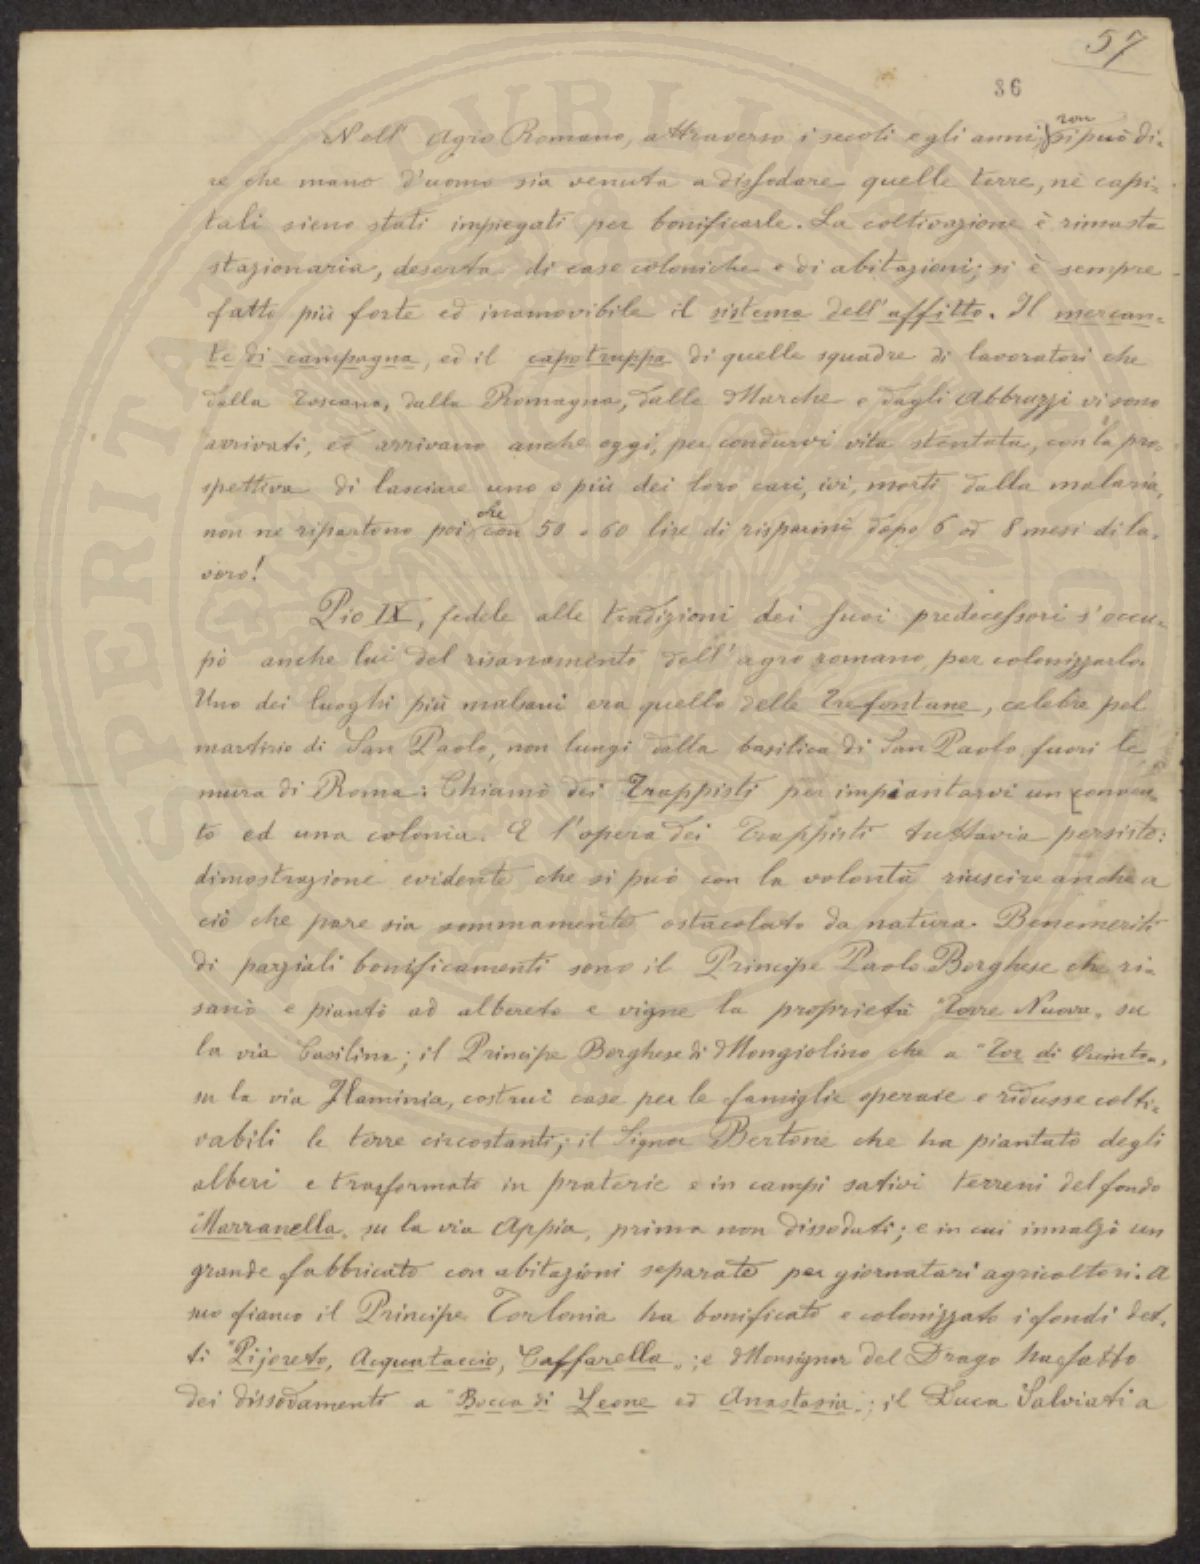 57
36
Nell' Agro Romano, attraverso i secoli e gli anni, non si può di-
re che mano d'uomo sia venuta a dissodare quelle terre, nè capi-
tali sieno stati impiegati per bonificarle. La coltivazione è rimasta
stazionaria, deserta di case coloniche e di abitazioni; si è sempre
fatto più forte ed inamovibile il sistema dell'affitto. Il mercan-
te di campagna, ed il capotruppa di quelle squadre di lavoratori che
dalla Toscana, dalla Romagna, dalle Marche e dagli Abbruzzi vi sono
arrivati, ed arrivano anche oggi, per condurvi vita stentata, con la pro-
spettiva di lasciare uno o più dei loro cari, ivi, morti dalla malaria,
non ne ripartono poi che con 50 o 60 lire di risparmi dopo 6 od 8 mesi di la-
voro!
Pio IX, fedele alle tradizioni dei suoi predecessori s'occu-
pò anche lui del risanamento dell'agro romano per colonizzarlo.
Uno dei luoghi più malsani era quello delle Trefontane, celebre pel
martirio di San Paolo, non lungi dalla basilica di San Paolo fuori le
mura di Roma: Chiamò dei Trappisti per impiantarvi un conven-
to ed una colonia. E l'opera dei Trappisti tuttavia persiste:
dimostrazione evidente che si può con la volontà riuscire anche a
ciò che pare sia sommamente ostacolato da natura. Benemeriti
di parziali bonificamenti sono il Principe Paolo Borghese che ri-
sanò e piantò ad albereto e vigne la proprietà "Torre Nuova" su
la via Casilina; il Principe Borghese di Mongiolino che a "Tor di Quinto",
su la via Flaminia, costruì case per le famiglie operaie e ridusse colti-
vabili le terre circostanti; il Signor Bertone che ha piantato degli
alberi e trasformato in praterie e in campi sativi terreni del fondo
Marranella" su la via Appia, prima non dissodati; e in cui innalzò un
grande fabbricato con abitazioni separate per giornatari agricoltori. A
suo fianco il Principe Torlonia ha bonificato e colonizzato i fondi det-
ti "Pijoreto, Acquataccio, Caffarella"; e Monsignor del Drago ha fatto
dei dissodamenti a "Bocca di Leone ed Anastasia"; il Duca Salviati a